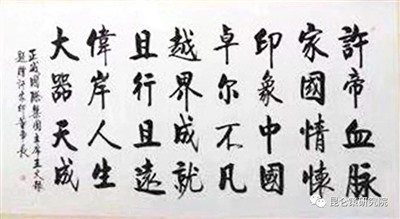 許帝血脉
家國情懷
印象中國
卓尔不凡
越界成就
且行且遠
偉岸人生
大器天成
正威國際集團主席王文銀
題贈許家印董事長
昆仑策研究院